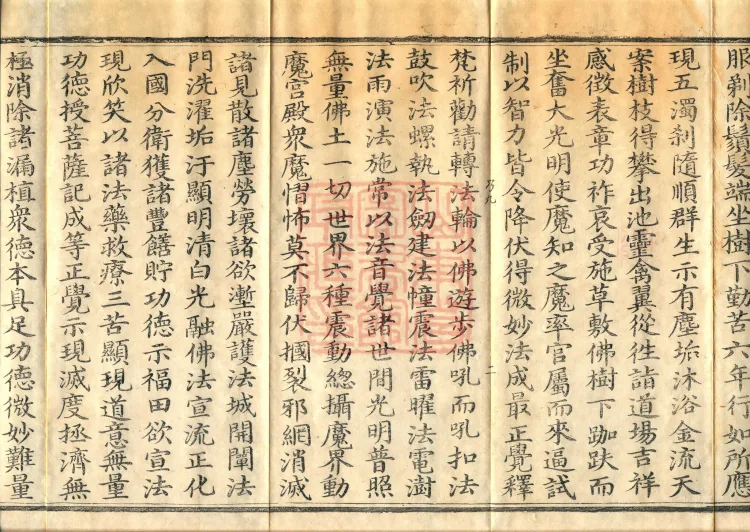 服剃除鬚髮端坐樹下勤苦六年行如所應
現五濁刹隨順群生示有塵垢沐浴金流天
案樹枝得攀出池靈禽翼從徃詣道場吉祥
感徵表章功祚哀受施草敷佛樹下跏趺而
坐奮大光明使魔知之魔率官屬而來逼試
制以智力皆令降伏得微妙法成最正覺釋
梵祈勸請轉法輪以佛遊步佛吼而吼扣法
鼓吹法螺執法劒建法幢震法雷曜法電澍
法雨演法施常以法音覺諸世間光明普照
無量佛土一切世界六種震動總攝魔界動
魔宮殿衆魔慴怖莫不歸伏摑裂邪網消滅
諸見散諸塵勞壞諸欲漸嚴護法城開闡法
門洗濯垢汙顯明清白光融佛法宣流正化
入國分衛獲諸豐饍貯功德示福田欲宣法
現欣笑以諸法藥救療三苦顯現道意無量
功德授菩薩記成等正覺示現滅度拯濟無
極消除諸漏植衆德本具足功德微妙難量